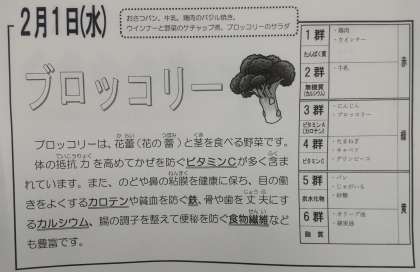 2月1日(水)
おさつパン、牛乳、鶏肉のバジル焼き、
ウインナーと野菜のケチャップ煮、ブロッコリーのサラダ
ブロッコリー
ブロッコリーは、花蕾(花の蕾)と茎を食べる野菜です。
体の抵抗力を高めてかぜを防ぐビタミンCが多く含ま
れています。また、のどや鼻の粘膜を健康に保ち、目の働
きをよくするカロテンや貧血を防ぐ鉄、骨や歯を丈夫にす
るカルシウム、腸の調子を整えて便秘を防ぐ食物繊維など
も豊富です。
1群
たんぱく質
・鶏肉
・ウインナー
2群
無機質
(カルシウム)
・牛乳
赤
3群
ビタミンA
(カロテン)
・にんじん
・ブロッコリー
4群
ビタミンC
・たまねぎ
・キャベツ
・グリンピース
緑
5群
炭水化物
・パン
・じゃがいも
・砂糖
6群
脂質
・オリーブ油
黄